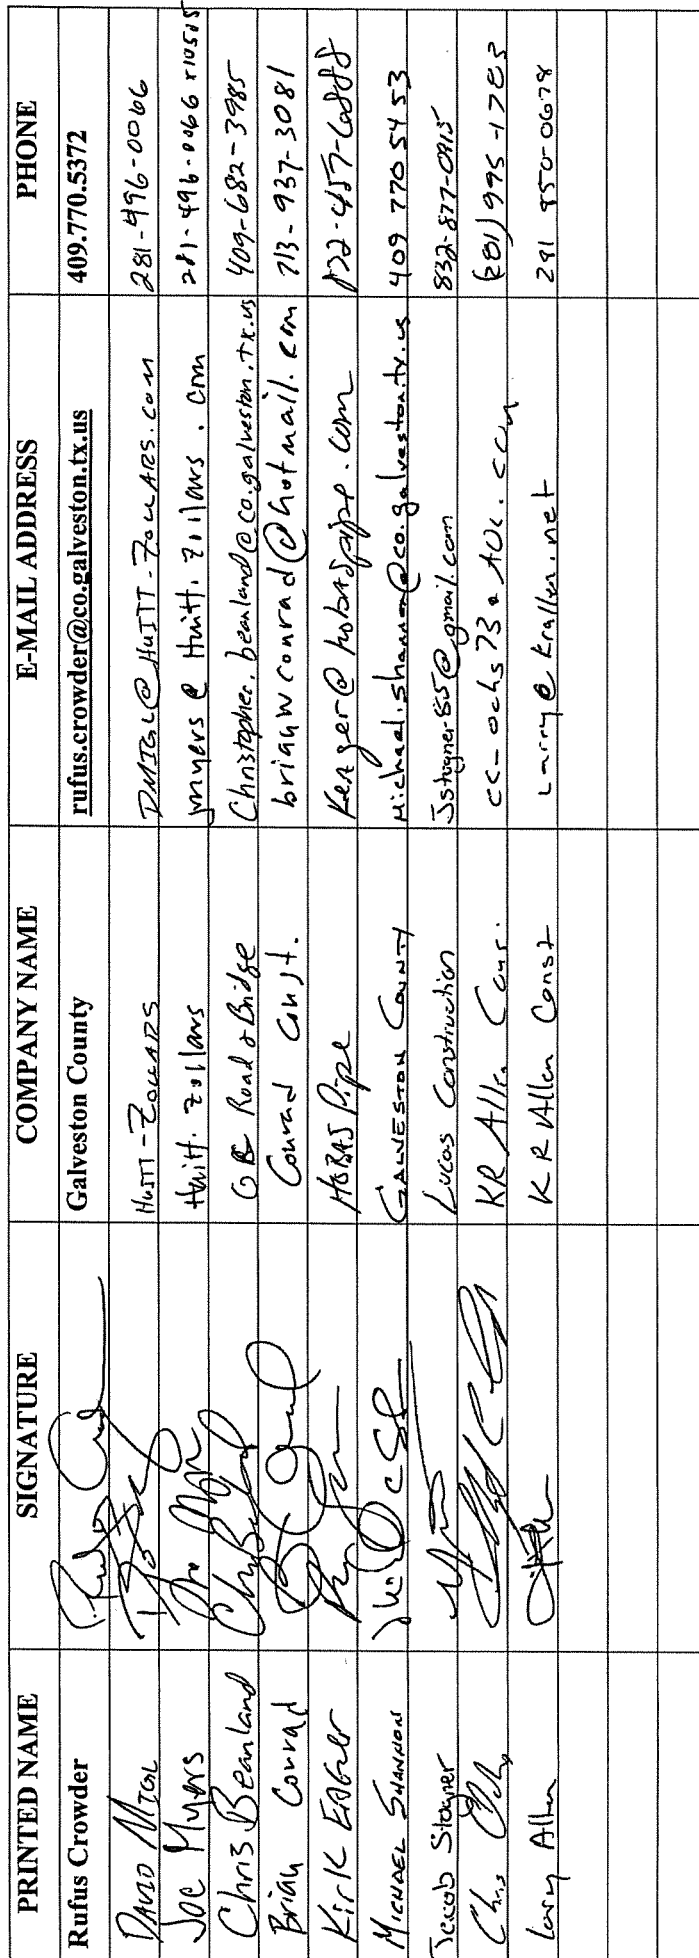 PRINTED NAME SIGNATURE COMPANY NAME E-MAIL ADDRESS PHONE
Rufus Crowder Galveston County rufus.crowder@co.galveston.tx.us 409.770.5372
DAVID MIGL HUITT-ZOLLARS DMIGL@HUITT-ZOLLARS.com 281-496-0066
Joe Myers Huitt. Zollars jmyers@Huitt.Zollars.com 281-496-0066 x10515
Chris Beanland GC Road & Bridge Christopher.beanland@co.galveston.tx.us 409-682-3985
Brian Conrad Conrad Const. brianwconrad@hotmail.com 713-937-3081
Kirk HOBAS Pipe
MICHAEL SHANNON GALVESTON COUNTY Michael.shannon@co.galveston.tx.us 409 770 5453
Jacob Stogner Lucas Construction Jstogner85@gmail.com 832-877-0915
Chris KR Allen Cons. (281) 995-1783
Larry Allen KR Allen Const Larry@krallen.net